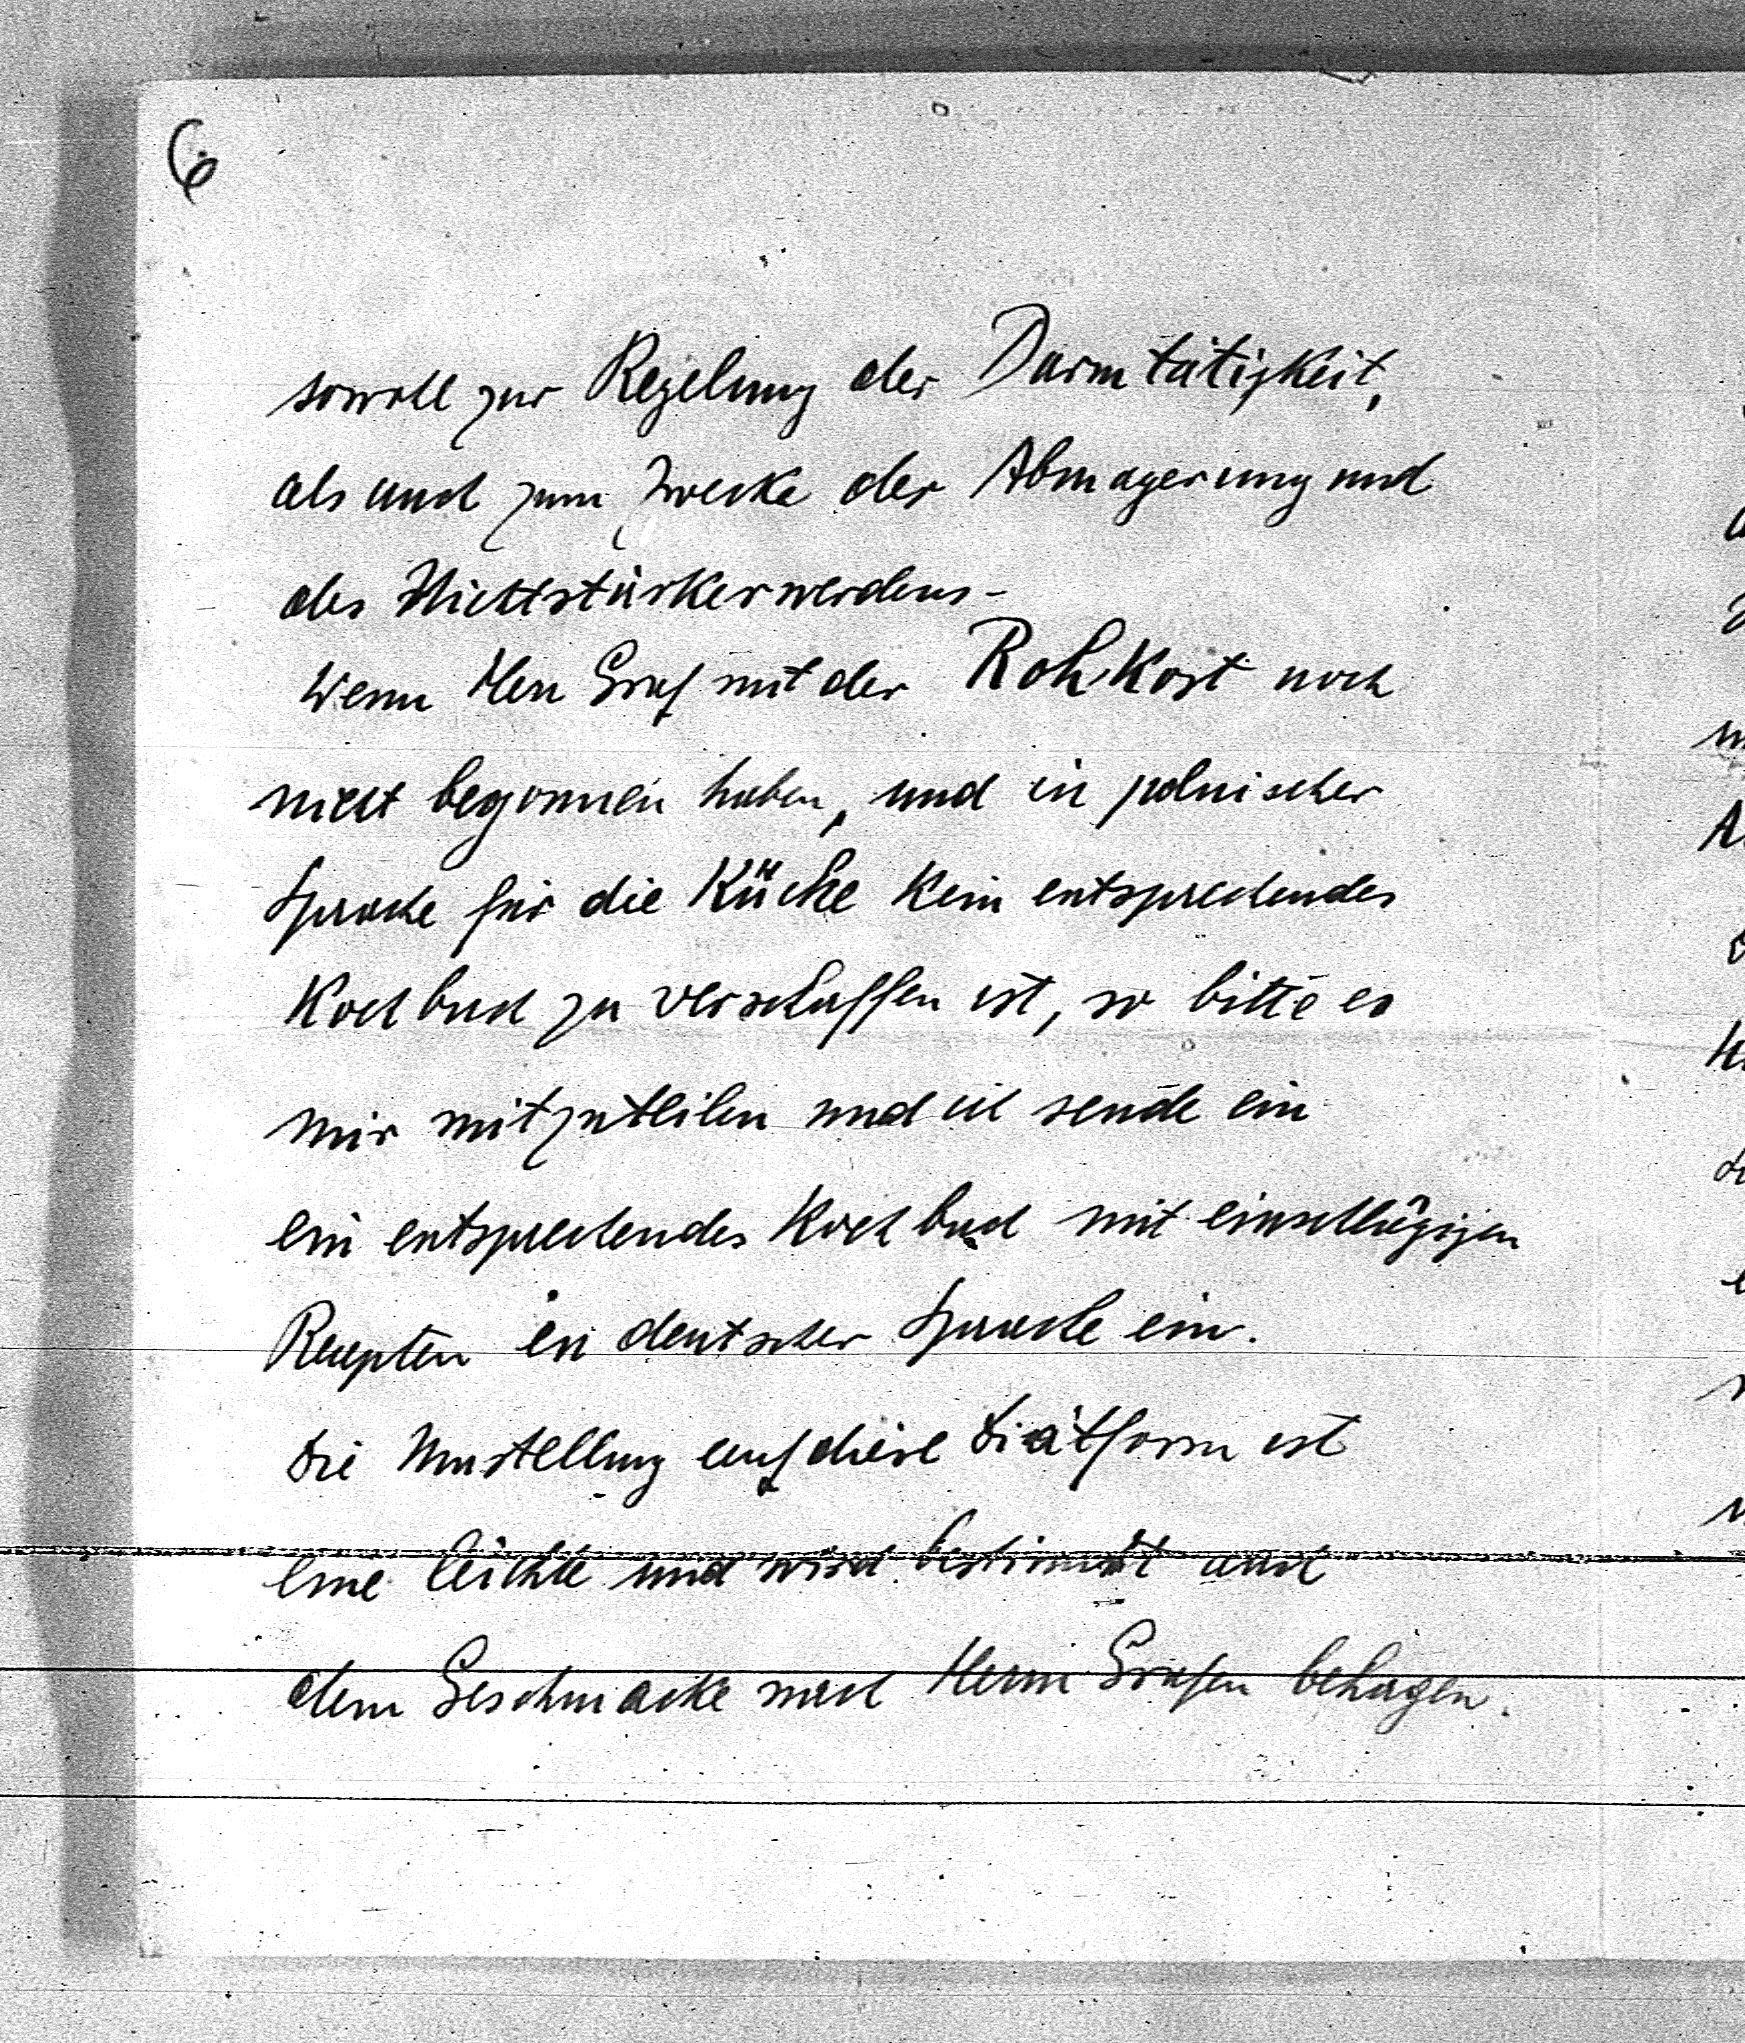 6
sowohl zur Regelung der Darmtätigkeit,
als auch zum Zwecke der Abmagerung und
des Nichtstärkerwerdens-
Wenn Herr Graf mit der Rohkost noch
nicht begonnen haben, und in polnischer
Sprache für die Küche kein entsprechendes
Kochbuch zu verschaffen ist, so bitte es
mir mitzuteilen und ich sende ein
ein entsprechendes Kochbuch mit einschlägigen
Rezepten in deutscher Sprache ein.
Die Umstellung auf diese Diätform ist
eine leichte und wird bestimmt auch
dem Geschmacke nach Herrn Grafen behagen.